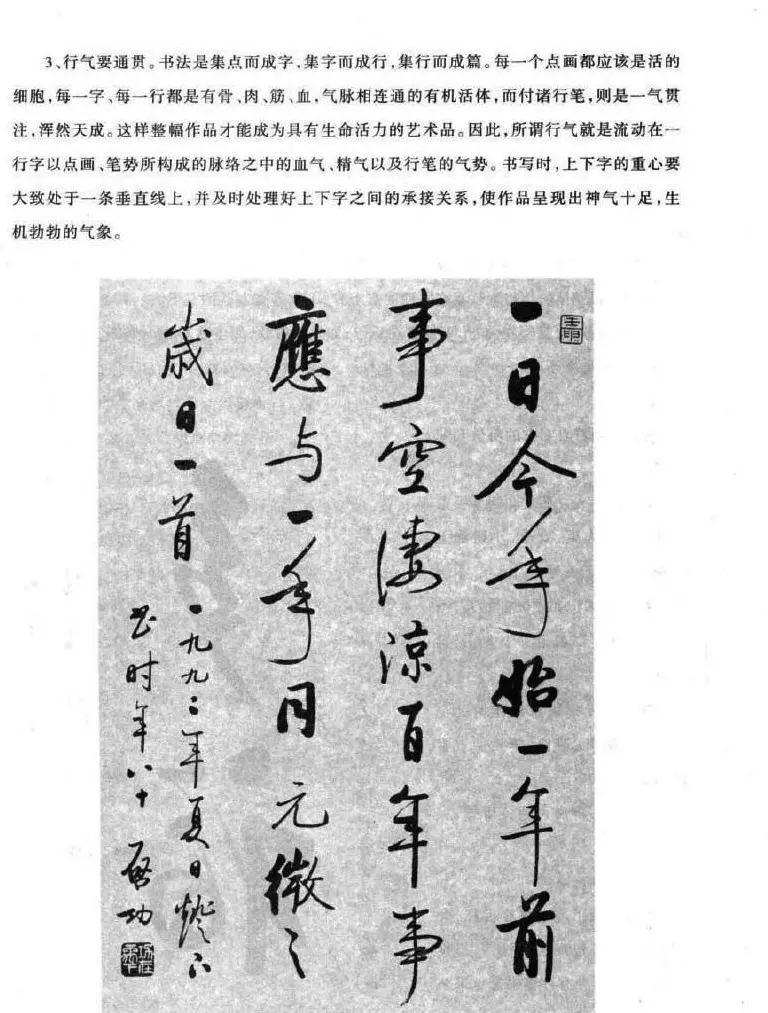 3、行气要通贯。书法是集点而成字,集字而成行,集行而成篇。每一个点画都应该是活的
细胞,每一字、每一行都是有骨、肉、筋、血,气脉相连通的有机活体,而付诸行笔,则是一气贯
注,浑然天成。这样整幅作品才能成为具有生命活力的艺术品。因此,所谓行气就是流动在一
行字以点画、笔势所构成的脉络之中的血气、精气以及行笔的气势。书写时,上下字的重心要
大致处于一条垂直线上,并及时处理好上下字之间的承接关系,使作品呈现出神气十足,生
机勃勃的气象。
一日今年始一年前
事空凄涼百年事
應与一年同元微之
歲日一首
一九九二年夏日燈下
书时年八十啟功